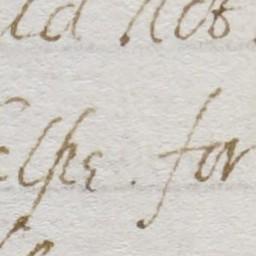 ld not
elpe . for